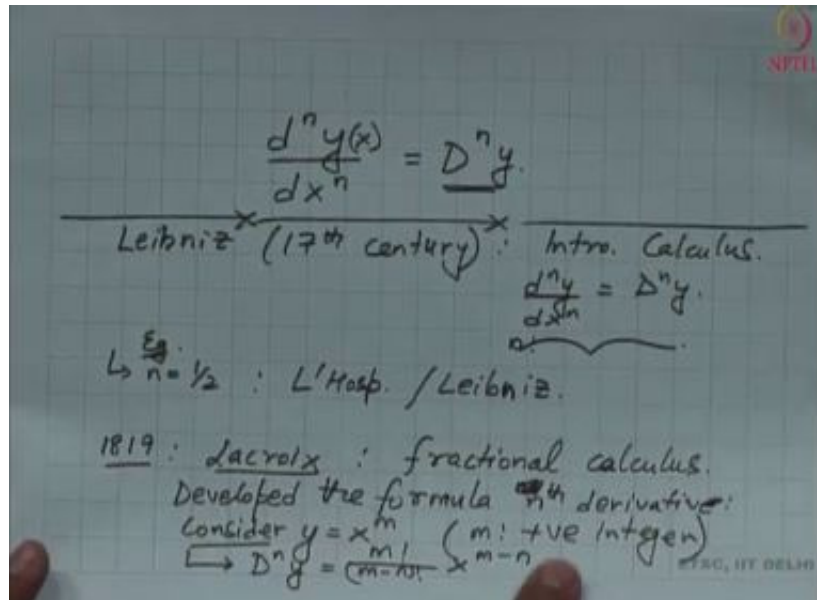 NPTEL
dⁿy(x)/dxⁿ = Dⁿy.
Leibniz (17th century) : Intro. Calculus.
dⁿy/dxⁿ = Dⁿy.
Eg.
↳ n = 1/2 : L'Hosp. / Leibniz.
1819 : Lacroix : fractional calculus.
Developed the formula nth derivative:
Consider y = x^m (m: +ve integer)
↳ Dⁿy = m!/(m-n)! x^(m-n)
ETSC, IIT DELHI